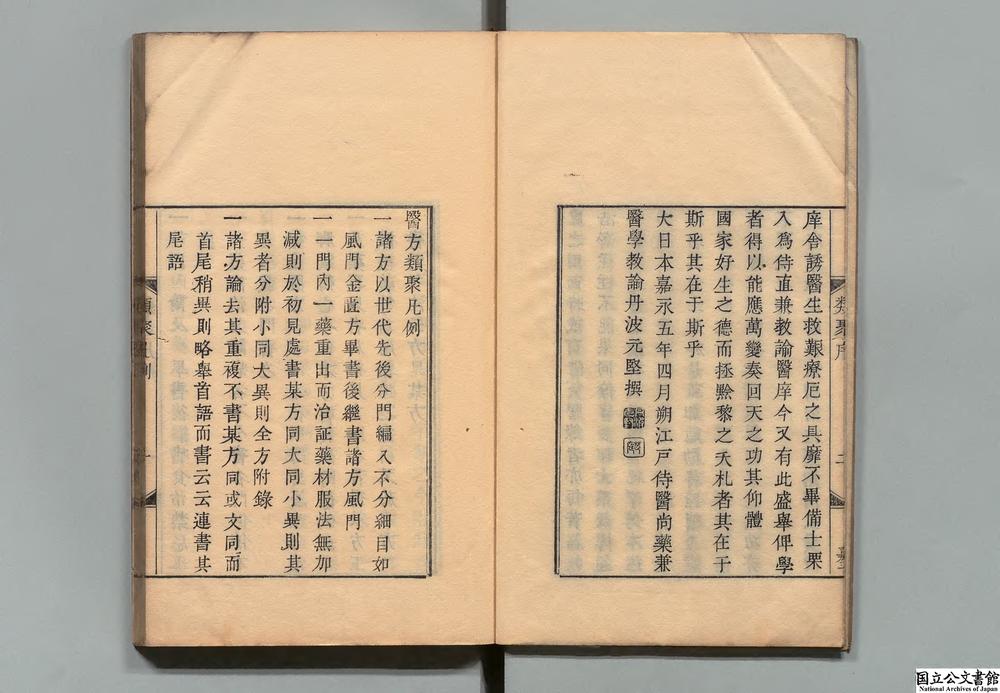 庠舎誘醫生救艱療厄之具靡不畢備士栗
入爲侍直兼教諭醫庠今又有此盛舉俾學
者得以能應萬變奏回天之功其仰體
國家好生之德而拯黔黎之夭札者其在于
斯乎其在于斯乎
大日本嘉永五年四月朔江戸侍醫尚藥兼
醫學教諭丹波元堅撰
醫方類聚凡例
一諸方以世代先後分門編入不分細目如
風門金匱方畢書後繼書諸方風門
一一門內一藥重出而治証藥材服法無加
減則於初見處書某方同大同小異則其
異者分附小同大異則全方附錄
一諸方論去其重複不書某方同或文同而
首尾稍異則略舉首語而書云云連書其
尾語
国立公文書館
National Archives of Japan